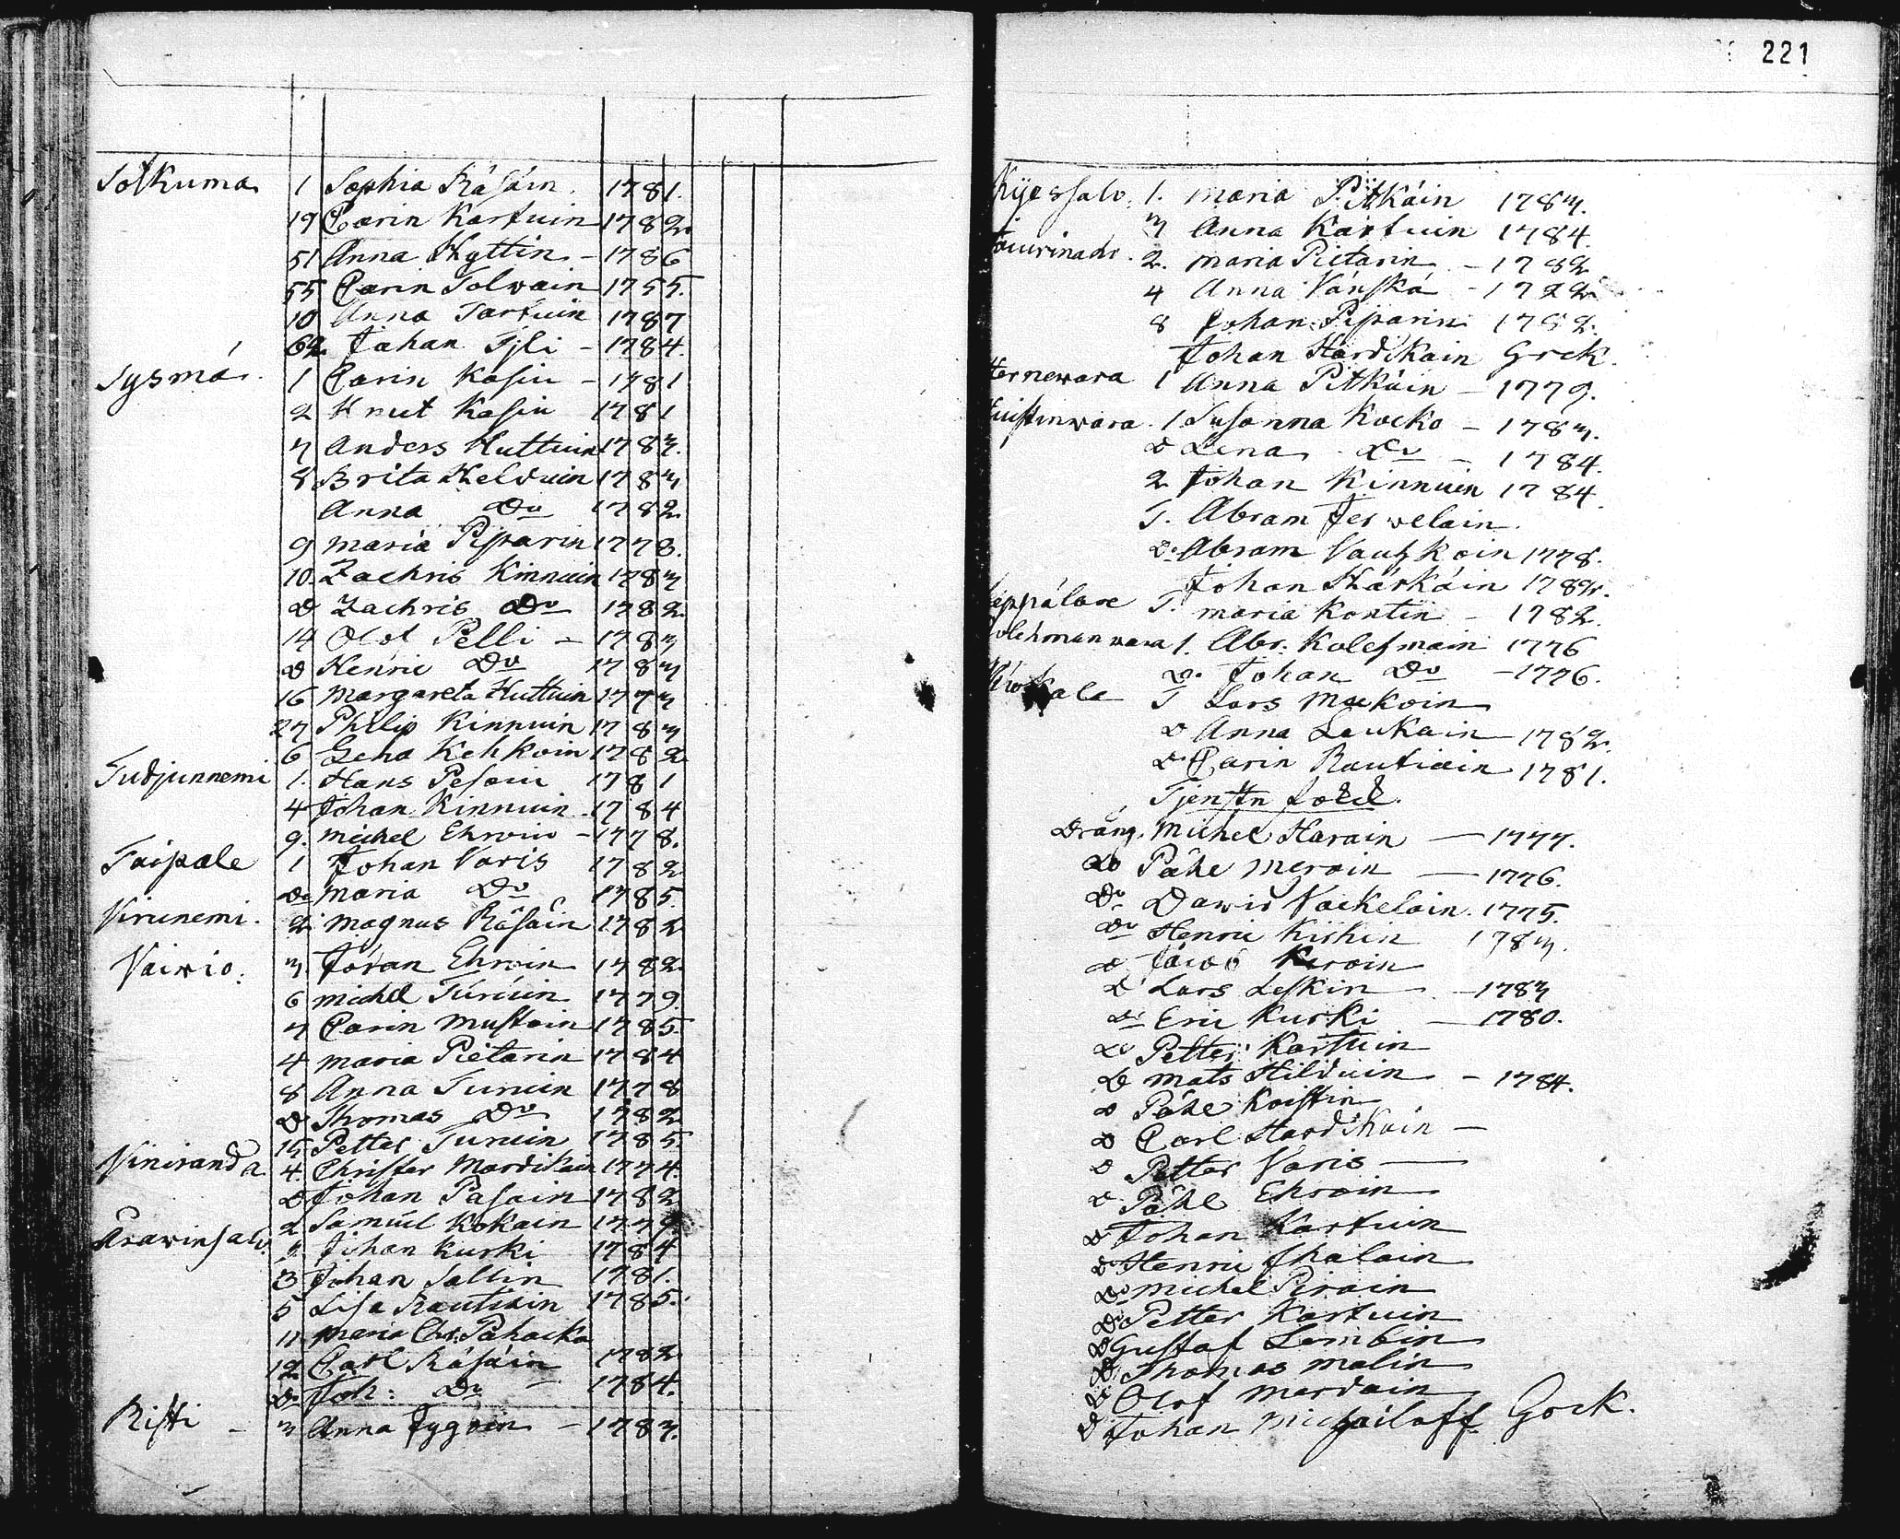 Sotkuma 1 Sophia Räsäin 1781.
19 Carin Kartuin 1782.
51 Anna Hyttin - 1786
55 Carin Tolwain 1755.
10 Anna Tartuin 1787
62 Johan Tjli - 1784.
Sysmä 1 Carin Kasiu - 1781
2 Knut Kasiu 1781
7 Anders Huttuin 1783.
8 Brita Helduin 1783
Anna Do 1782
9 Maria Piparin 1778.
10. Zachris Kinnuin 1783
D Zachris Do 1782
14 Olof Pelli - 1783
D Henric Do 1783
16 Margareta Huttuin 1773
27 Philip Kinnuin 1783
6 Gena Kehkoin 1782
Tudjunnemi 1. Hans Pesoiu 1781
4 Johan Kinnuin 1784
9. Michel Ehrvin - 1778.
Taipale 1 Johan Varis 1782
Do Maria Do 1785.
Virunemi. 2 Magnus Räsäin 1782
Vaiwio. 3. Johan Ehroin 1782
6 Michel Turuin 1779.
7 Carin Mustoin 1785
4 Maria Pietarin 1784
8 Anna Turuin 1778
D Thomas Do 1782
15 Petter Turuin 1785.
Viniranda 4. Christer Mardikain 1774.
D Johan Pasain 1782
Arawinsalo 2 Samuel Kokain 1779
Johan Kurki 1784
3 Johan Sallin 1781.
5 Lisa Rautiain 1785.
11 Maria Chr. Pahacka
12 Carl Räsäin 1782
Do Joh: Do - 1784.
Risti - 3 Anna Jygoin - 1783.
221
Kyessalo. 1. Maria Pitkäin 1783.
3 Anna Kartuin 1784.
2. Maria Pietarin - 1782
4 Anna Vänskä - 1782
8 Johan Piparin 1782.
Johan Hardikain Grek.
Hernewara 1 Anna Pitkäin - 1779.
1 Susanna Kocko - 1783.
D Lena Do - 1784.
2 Johan Kinnuin 1784.
T. Abram Jerwelain.
D. Abram Vautzkoin 1778.
Johan Härkäin 1782.
T. Maria Kontin - 1782.
Kolehmanwara 1. Abr. Kolehmain 1776
D. Johan Do - 1776.
T Lars Mackoin
D Anna Laukain - 1782.
D Carin Rautiain 1781.
Tjenstn folck.
Dräng. Michel Harain - 1777.
Do Påhe Meroin - 1776.
Do Dawid Vackelain. 1775.
Do Henric Kiskin 1783.
D Keroin
D Lars Leskin - 1783
Do Eric Kurki - 1780.
Do Petter Kartuin
D Mats Hilduin - 1784.
D Påhe Koistin
D Carl Hardikain -
D Petter Varis -
D Påhl Ehroin
D Johan Kartuin
D Henric Ihalain
Do Michel Piroin
Do Petter Kartuin
D Gustaf Lembin
D Thomas Malin
D Olof Mardain
D Johan Michailoff. Grek.